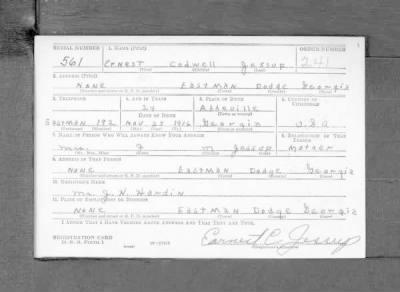 SERIAL NUMBER 1. NAME (Print) ORDER NUMBER
561 Ernest Codwell Jessup 241
(First) (Middle) (Last)
2. ADDRESS (Print)
None Eastman Dodge Georgia
3. TELEPHONE 4. AGE IN YEARS 5. PLACE OF BIRTH 6. COUNTRY OF CITIZENSHIP
24 Abbeville
DATE OF BIRTH
Eastman 192 Nov. 25 1916 Georgia U.S.A
7. NAME OF PERSON WHO WILL ALWAYS KNOW YOUR ADDRESS 8. RELATIONSHIP OF THAT PERSON
Mrs. M Jessup Mother
9. ADDRESS OF THAT PERSON
None Eastman Dodge Georgia
10. EMPLOYER'S NAME
Mr. J. N. Hardin
11. PLACE OF EMPLOYMENT OR BUSINESS
None Eastman Dodge Georgia
I AFFIRM THAT I HAVE VERIFIED ABOVE ANSWERS AND THAT THEY ARE TRUE.
REGISTRATION CARD
D. S. S. FORM 1
Earnest C. Jessup